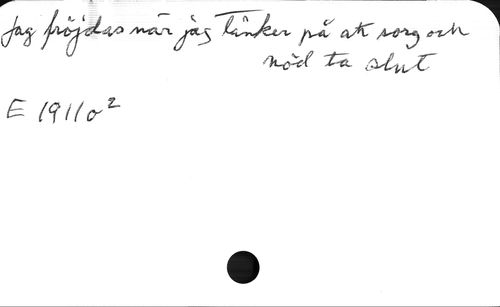 Jag fröjdas när jag tänker på att sorg och
nöd ta slut
E 1911 o 2